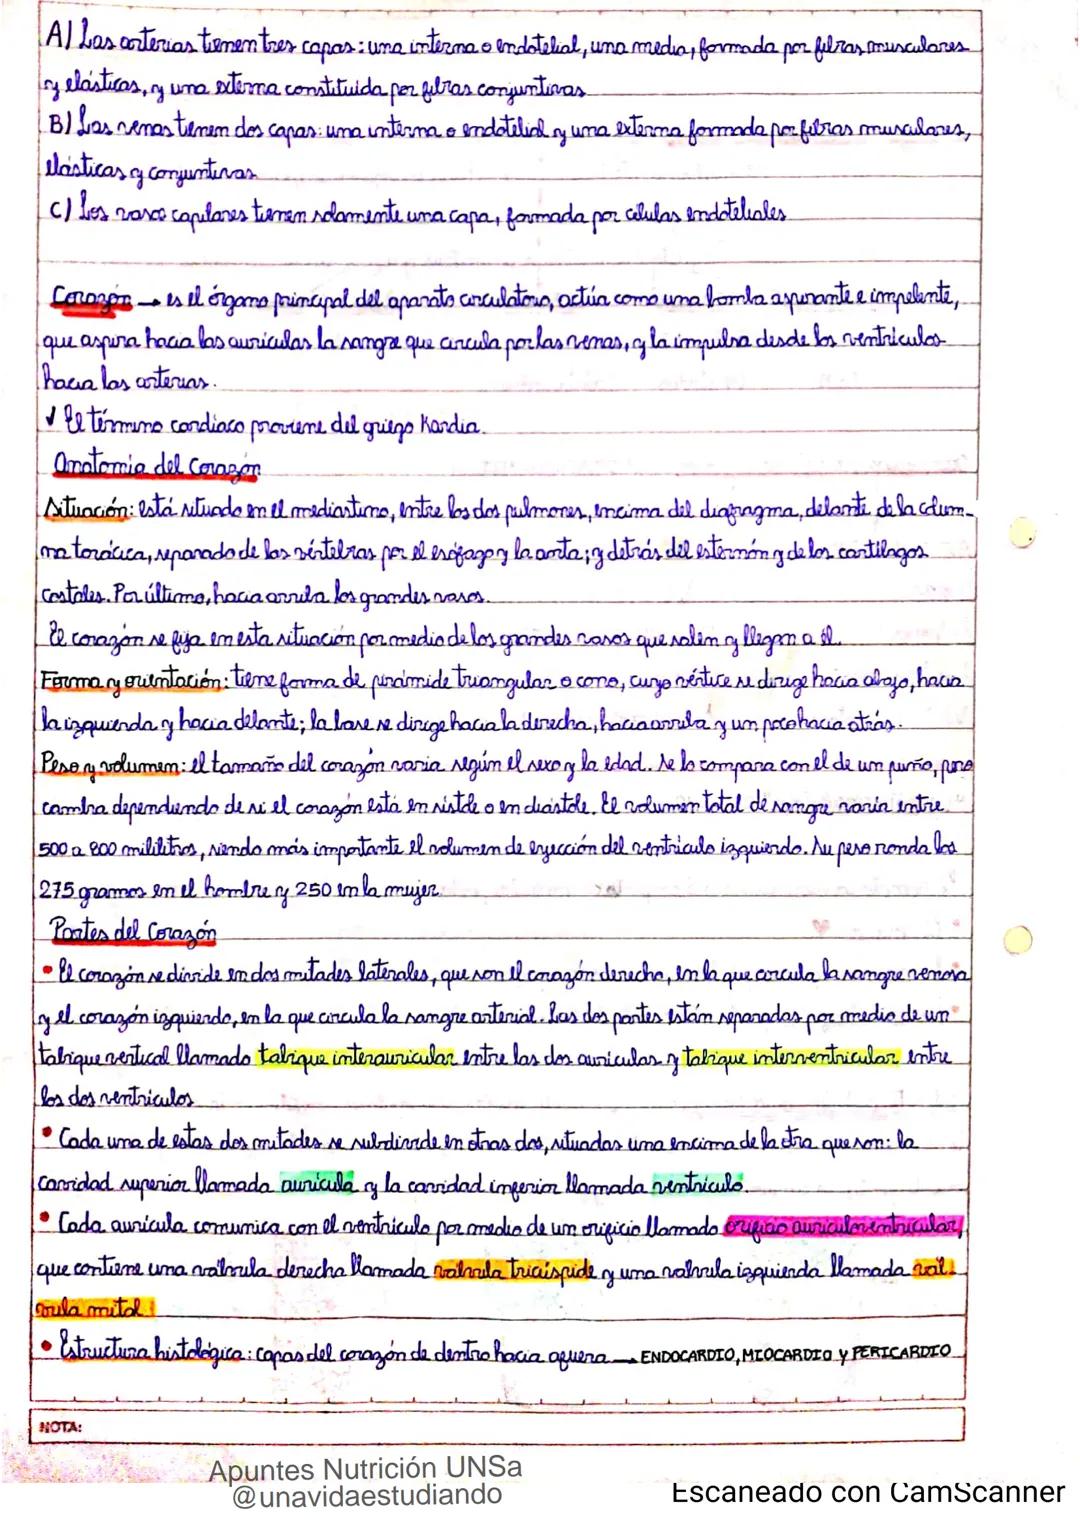 A) Las arterias tienen tres capas: una interna o endotelial, una media, formada por fibras musculares
y elásticas, y una externa constituida por fibras conjuntivas
B) Las venas tienen dos capas: una interna o endotelial y una externa formada por fibras musculares,
elásticas y conjuntivas
C) Los vasos capilares tienen solamente una capa, formada por células endoteliales
Corazón → es el órgano principal del aparato circulatorio, actúa como una bomba aspirante e impelente,
que aspira hacia las aurículas la sangre que circula por las venas, y la impulsa desde los ventrículos
hacia las arterias.
✓ El término cardiaco proviene del griego Kardia.
Anatomia del Corazón
Situación: está situado en el mediastino, entre los dos pulmones, encima del diafragma, delante de la colum-
na torácica, separado de las vértebras por el esófago y la aorta; y detrás del esternón y de los cartílagos
costales. Por último, hacia arriba los grandes vasos.
El corazón se fija en esta situación por medio de los grandes vasos que salen y llegan a él.
Forma y orientación: tiene forma de pirámide triangular o cono, cuyo vértice se dirige hacia abajo, hacia
la izquierda y hacia delante; la base se dirige hacia la derecha, hacia arriba y un poco hacia atrás.
Peso y volumen: el tamaño del corazón varia según el sexo y la edad. Se lo compara con el de un puño, pero
cambia dependiendo de si el corazón está en sístole o en diástole. El volumen total de sangre varia entre
500 a 800 mililitros, siendo más importante el volumen de eyección del ventrículo izquierdo. Su peso ronda los
275 gramos en el hombre y 250 en la mujer.
Partes del Corazón
• El corazón se divide en dos mitades laterales, que son el corazón derecho, en la que circula la sangre venosa
y el corazón izquierdo, en la que circula la sangre arterial. Las dos partes están separadas por medio de un
tabique vertical llamado tabique interauricular entre las dos aurículas y tabique interventricular entre
los dos ventrículos
• Cada una de estas dos mitades se subdivide en otras dos, situadas una encima de la otra que son: la
cavidad superior llamada aurícula y la cavidad inferior llamada ventrículo.
• Cada aurícula comunica con el ventrículo por medio de un orificio llamado orificio auriculoventricular,
que contiene una válvula derecha llamada valvula tricúspide y una valvula izquierda llamada val-
vula mitral
• Estructura histológica: capas del corazón de dentro hacia afuera → ENDOCARDIO, MIOCARDIO y PERICARDIO
NOTA:
Apuntes Nutrición UNSa
@unavidaestudiando
Escaneado con CamScanner